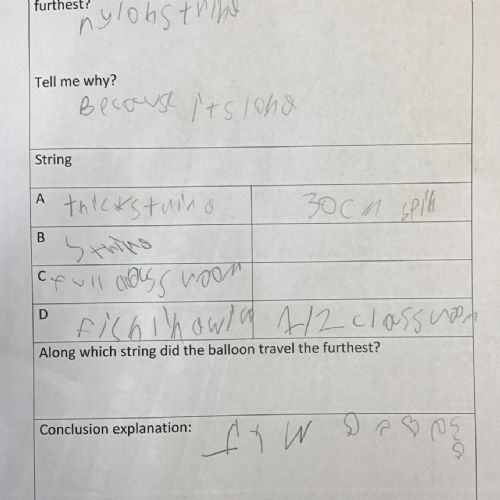 furthest?
nylonstring
Tell me why?
Because itslong
String
A thickstring 30cm
B String
C full across room
D 1/2 classroom
Along which string did the balloon travel the furthest?
Conclusion explanation: